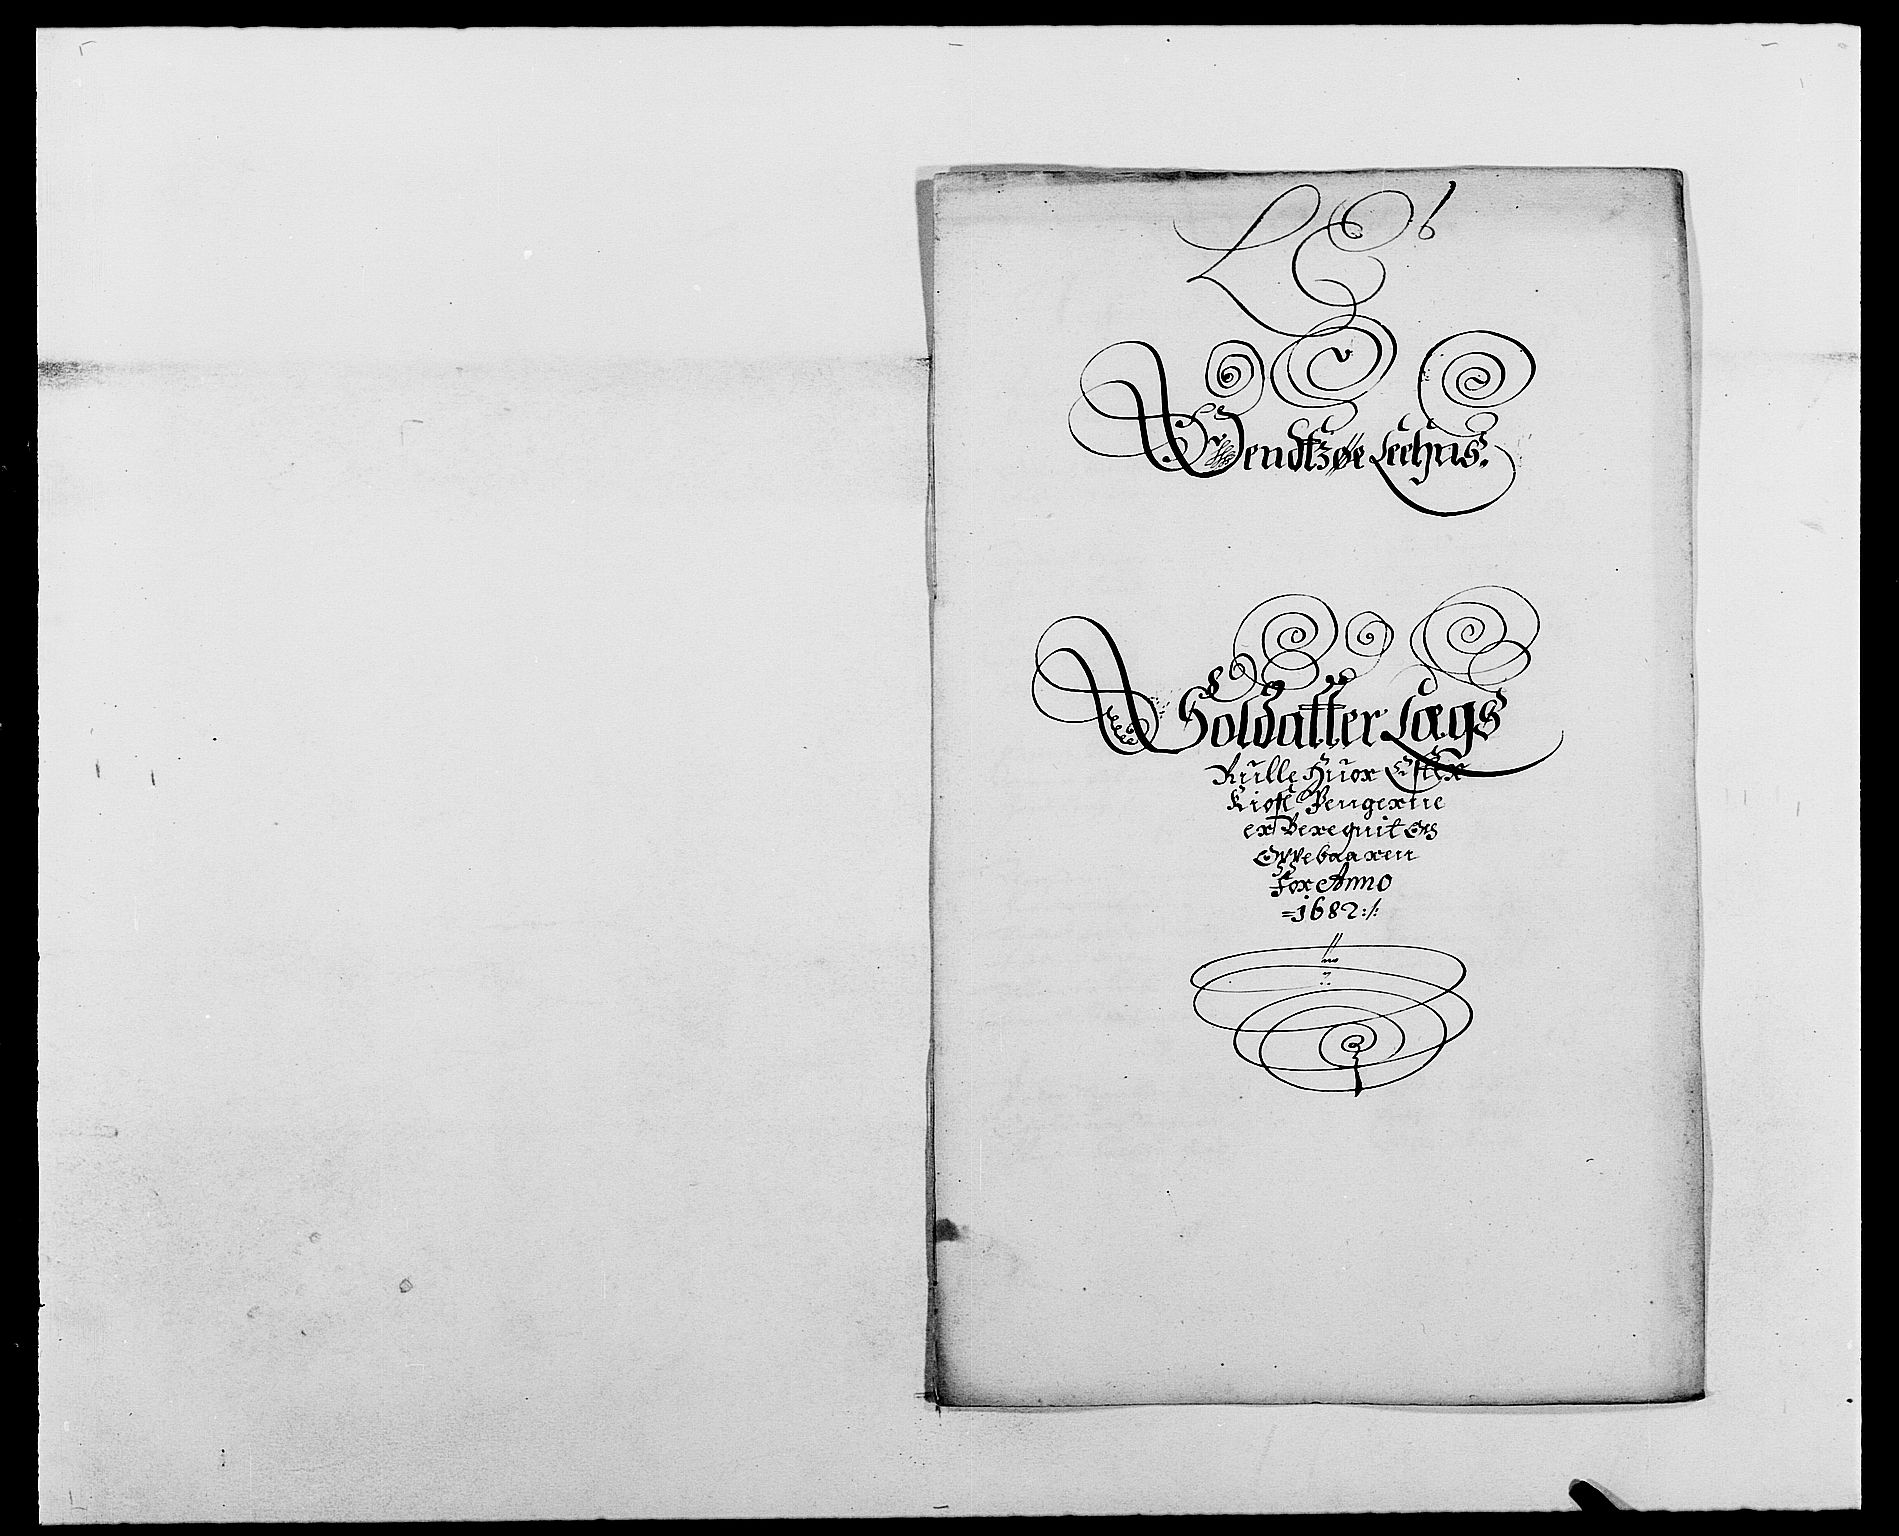 LE 6
Wendtzøe Leehns.
Soldatter Lægs
Rulle Huor Efter
Kiost Pengerne
er Beregnit Og
Oppebaaren
For Anno
=1682:/: